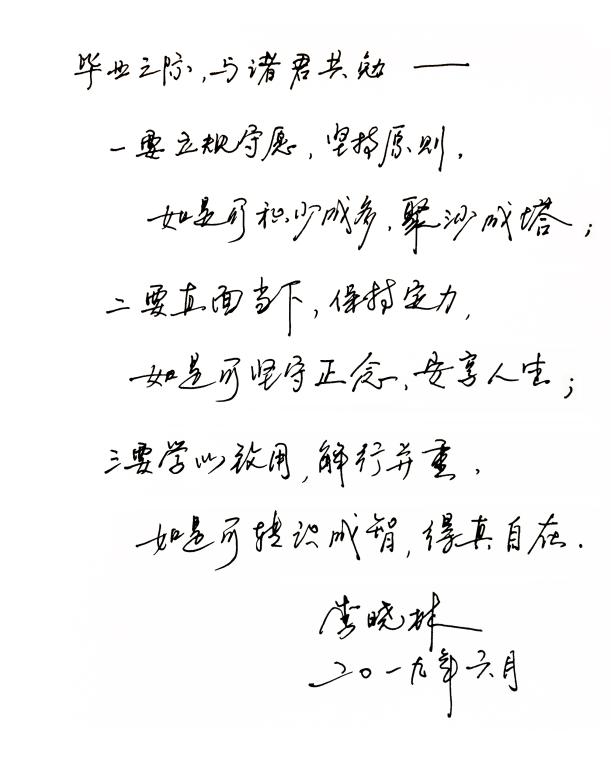 毕业之际，与诸君共勉 ——
一要立规守愿，坚持原则，
如是可积少成多，聚沙成塔；
二要直面当下，保持定力，
如是可坚守正念，安享人生；
三要学以致用，解行并重，
如是可转识成智，得真自在．
李晓林
二〇一九年六月